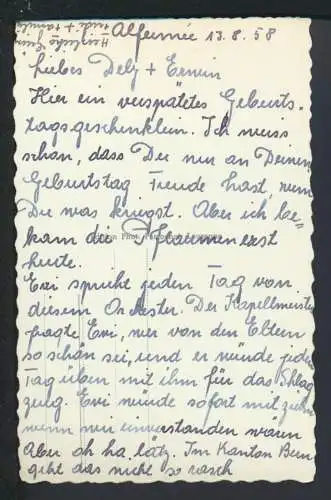 Alfermée 13.8.58
Liebes Dely + Erwin
Hier ein verspätetes Geburts-
tagsgeschenklein. Ich weiss
schon, dass Du nur an Deinem
Geburtstag Freude hast, wenn
Du was kriegst. Aber ich be-
kam die Pflaumen erst
heute.
Evi spricht jeden Tag von
diesem Orchester. Der Kapellmeister
fragte Evi, wer von den Eltern
so schön sei, und er würde jeden
Tag üben mit ihm für das Schlag
zeug. Evi würde sofort mit ziehen
wenn wir einverstanden wären
Aber oh ha, lätz. Im Kanton Bern
geht das nicht so rasch
Herzliche Grüsse
+ Familie